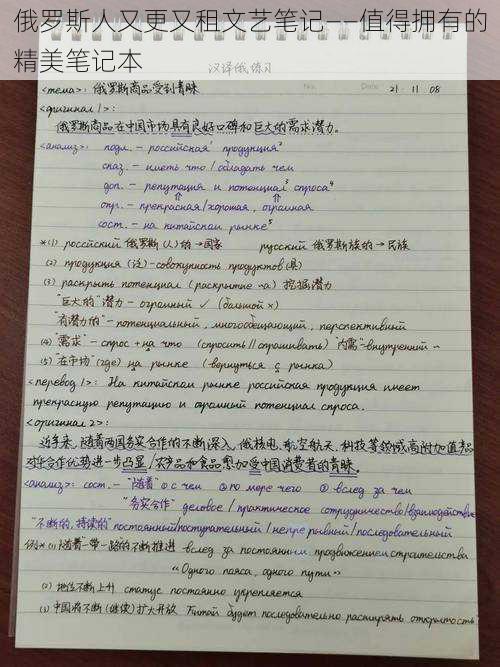 俄罗斯人又更又租文艺笔记——值得拥有的
精美笔记本
汉译俄练习
No. Date 21 11 08
<тема>: 俄罗斯商品受到青睐
<оригинал 1>:
俄罗斯商品在中国市场具有良好口碑和巨大的需求潜力。
<анализ>: подл. – российская¹ продукция²
сказ. – иметь что / обладать чем
доп. – репутация и потенциал³ спроса⁴
опр. – прекрасная/хорошая, огромная
сост. – на китайском рынке⁵
*(1) российский 俄罗斯(人)的→国家 русский 俄罗斯族的→民族
(2) продукция (泛)–совокупность продуктов(具)
(3) раскрыть потенциал (раскрытие -а) 挖掘潜力
"巨大的"潜力 – огромный ✓ (большой ×)
"有潜力的" – потенциальный, многообещающий, перспективный
(4) "需求" – спрос + на что (спросить // спрашивать) "内需" – внутренний ~
(5) "在市场" (где) на рынке (вернуться с рынка)
<перевод 1>: На китайском рынке российская продукция имеет
прекрасную репутацию и огромный потенциал спроса.
<оригинал 2>:
近年来,随着两国务实合作的不断深入,俄核电、航空航天、科技等领域高附加值产品
对华合作优势进一步凸显,农产品和食品愈加受中国消费者的青睐。
<анализ>: сост. – "随着" ①с чем ②по мере чего ③вслед за чем
"务实合作" деловое / практическое сотрудничество/взаимодействие
"不断的,持续的" постоянный/поступательный/непрерывный/последовательный
例*(1)随着一带一路的不断推进 вслед за постоянным продвижением строительства
«Одного пояса, одного пути»
(2) 地位不断上升 статус постоянно укрепляется
(3) 中国将不断(继续)扩大开放 Китай будет последовательно расширять открытость